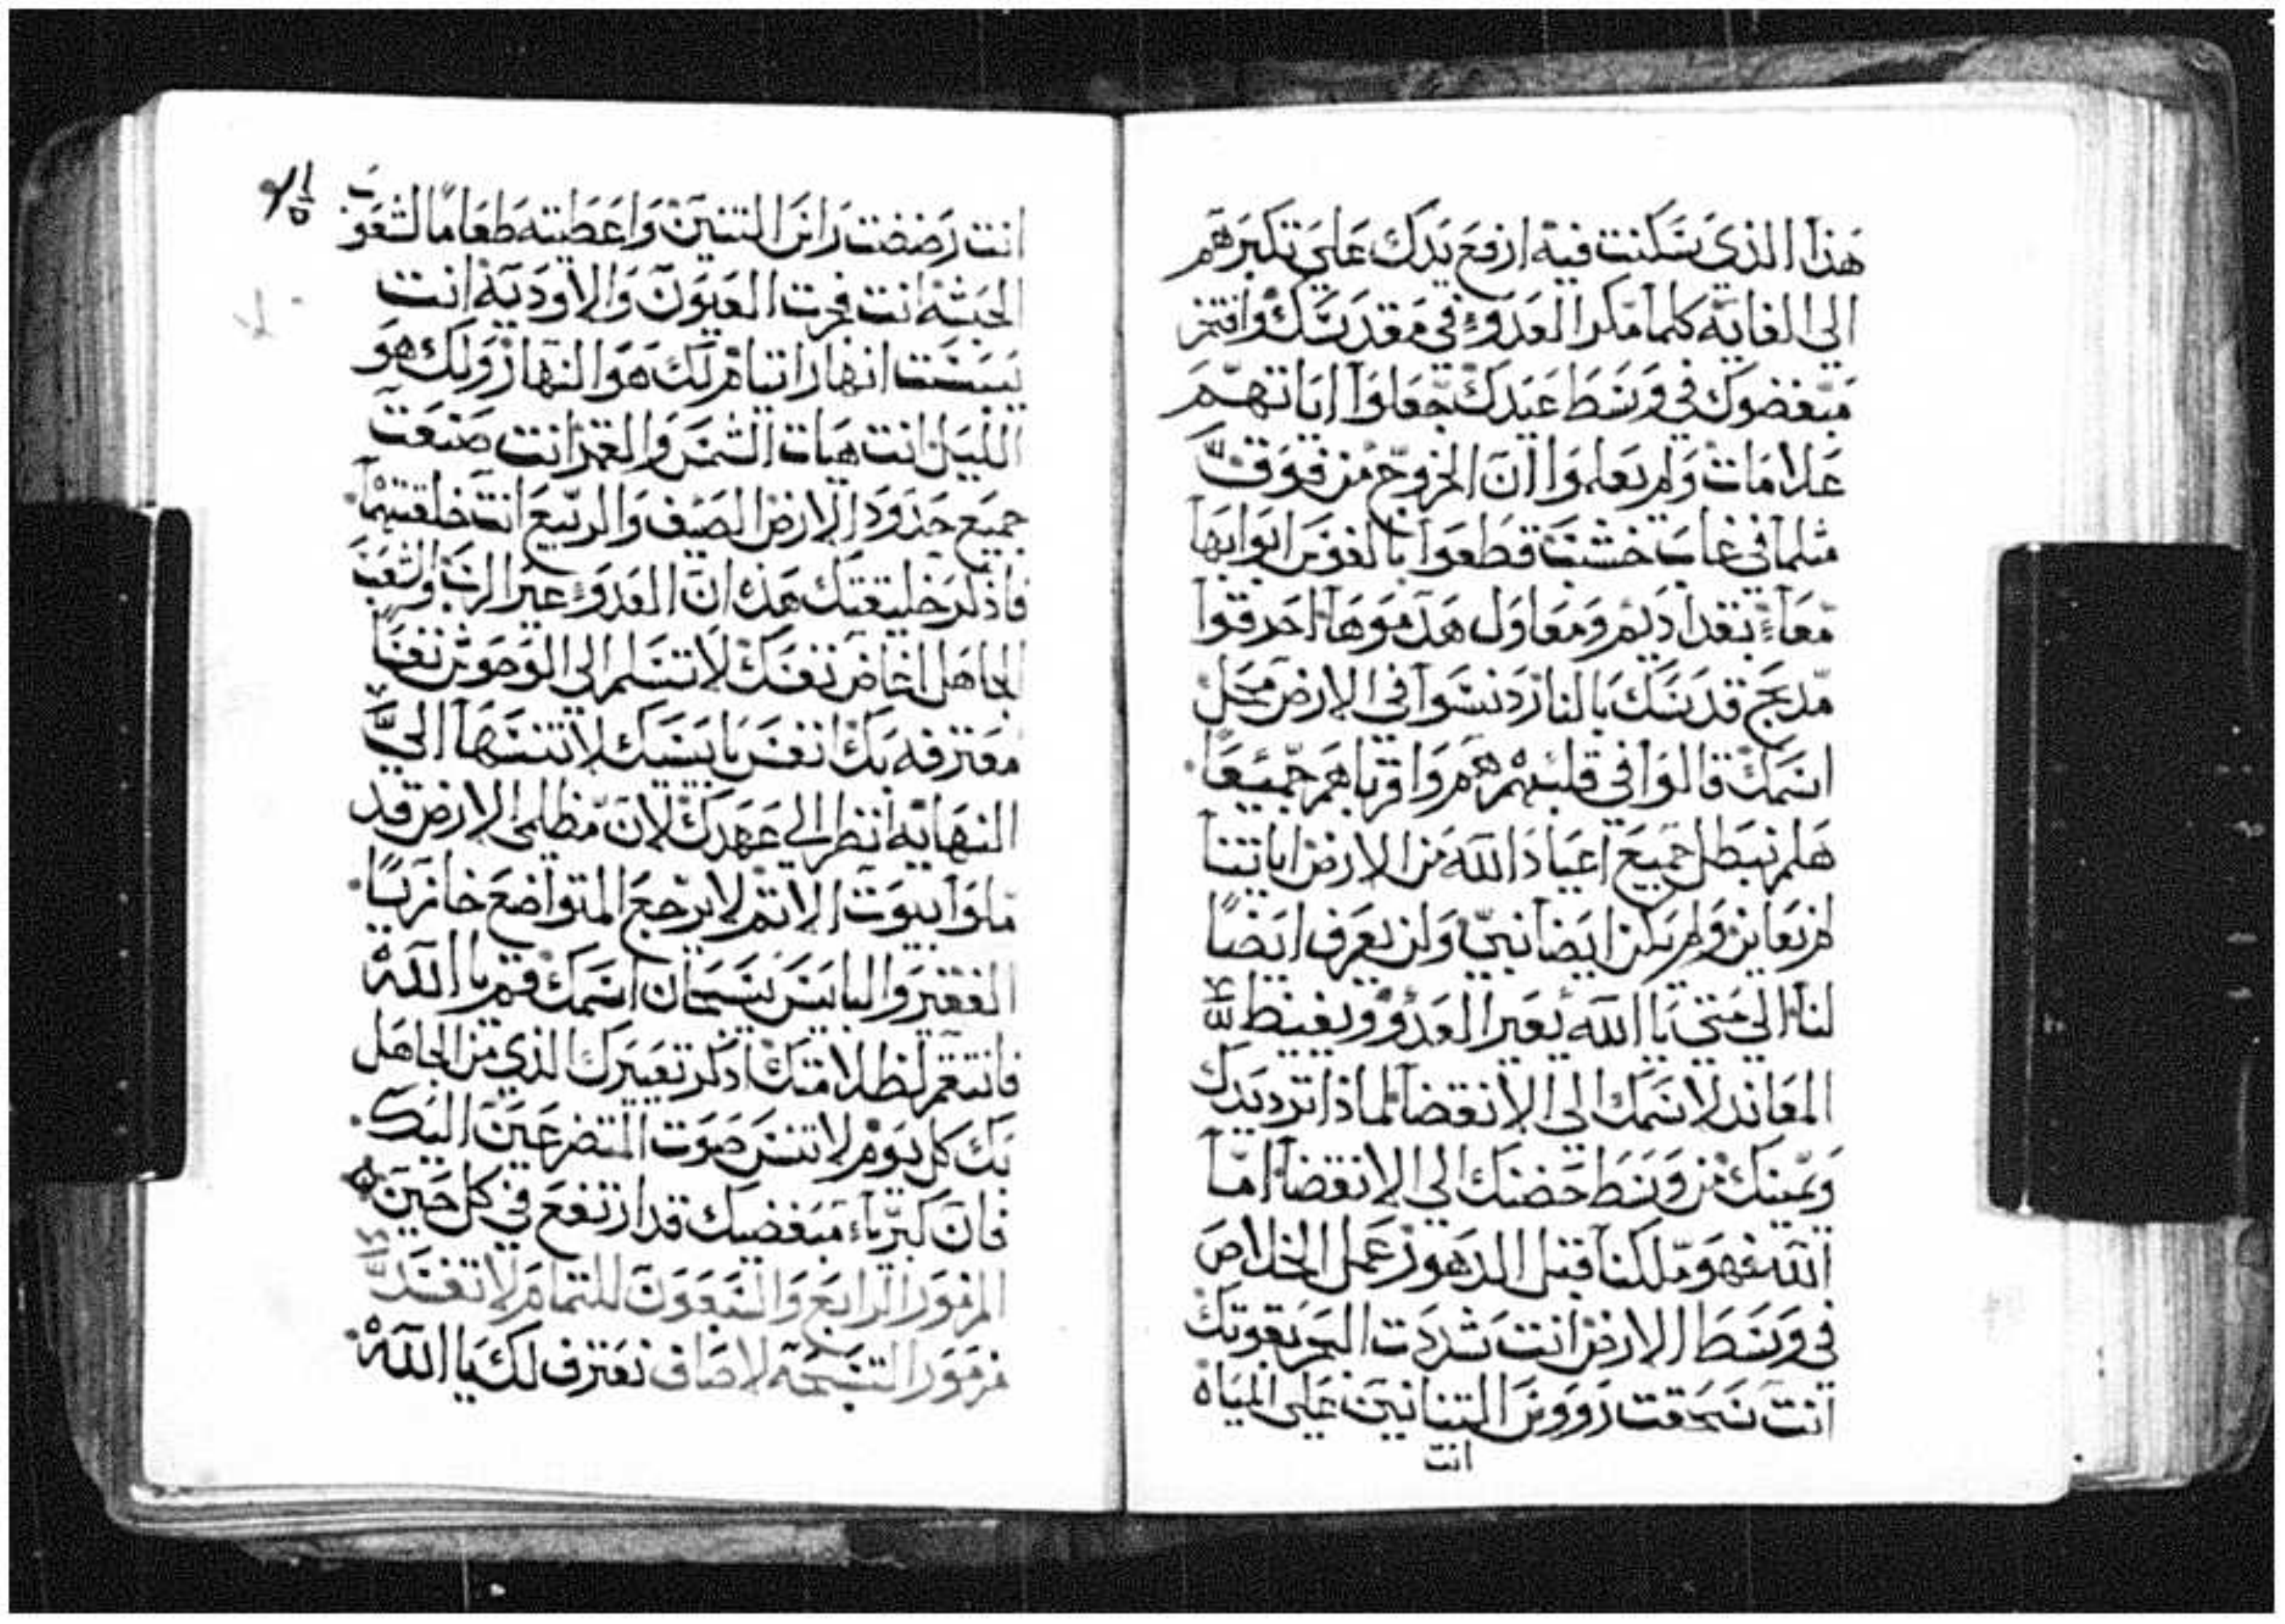 هذا الذي سكنت فيه ارفع يدك علي تكبرهم
الى الغاية كلما مكر العدوء في مقدسك وافتخر
مبغضوك في وسط عيدك جعلوا اياتهم
علامات ولم يعلموا ان الخروج من فوق
مثلما في غاب خشب قطعوا بالفوس ابوابها
معاء بفدا ديم ومعاول هدموها احرقوا
مدبح قدسك بالنار دنسوا في الارض محل
اسمك قالوا في قلبهم هم واقرباهم جميعا
هلم نبطل جميع اعياد الله من الارض اياتنا
لم نعاين ولم يكن ايضا نبي ولن يعرف ايضا
لنا الي متي يا الله يعير العدو ويغيظ
المعاند لاسمك الى الانقضا لماذا ترد يدك
ويمينك من وسط حضنك الى الانقضا اما
الله فهو ملكنا قبل الدهور عمل الخلاص
في وسط الارض انت شددت البحر بقوتك
انت سحقت رووس التنانين علي المياه
انت
انت رضضت راس التنين واعطيته طعاما لشعوب
الحبشه انت فجرت العيون والاودية انت
يبست انهار اتيام لك هو النهار ولك هو
الليل انت هيات الشمس والقمر انت صنعت
جميع حدود الارض الصيف والربيع انت خلقتهما
فاذكر خليقتك هذه ان العدوء عير الرب والشعب
الجاهل اغاض نفسك لا تسلم الي الوحوش نفسا
معترفه بك انفس بايسيك لا تنسها الي
النهاية انظر الي عهدك لان مظلمي الارض قد
ملوا بيوت الاثم لا يرجع المتواضع خازيا
الفقير والبايس يسبحان اسمك قم يا الله
فانتقم لظلامتك اذكر تعييرك الذي من الجاهل
بك كل يوم لا تنس صوت المتضرعين اليك
فان كبرياء مبغضيك قد ارتفع في كل حين
المزمور الرابع والسبعون للتمام لا تفسد
مزمور التسبحه لاصاف نعترف لك يا الله